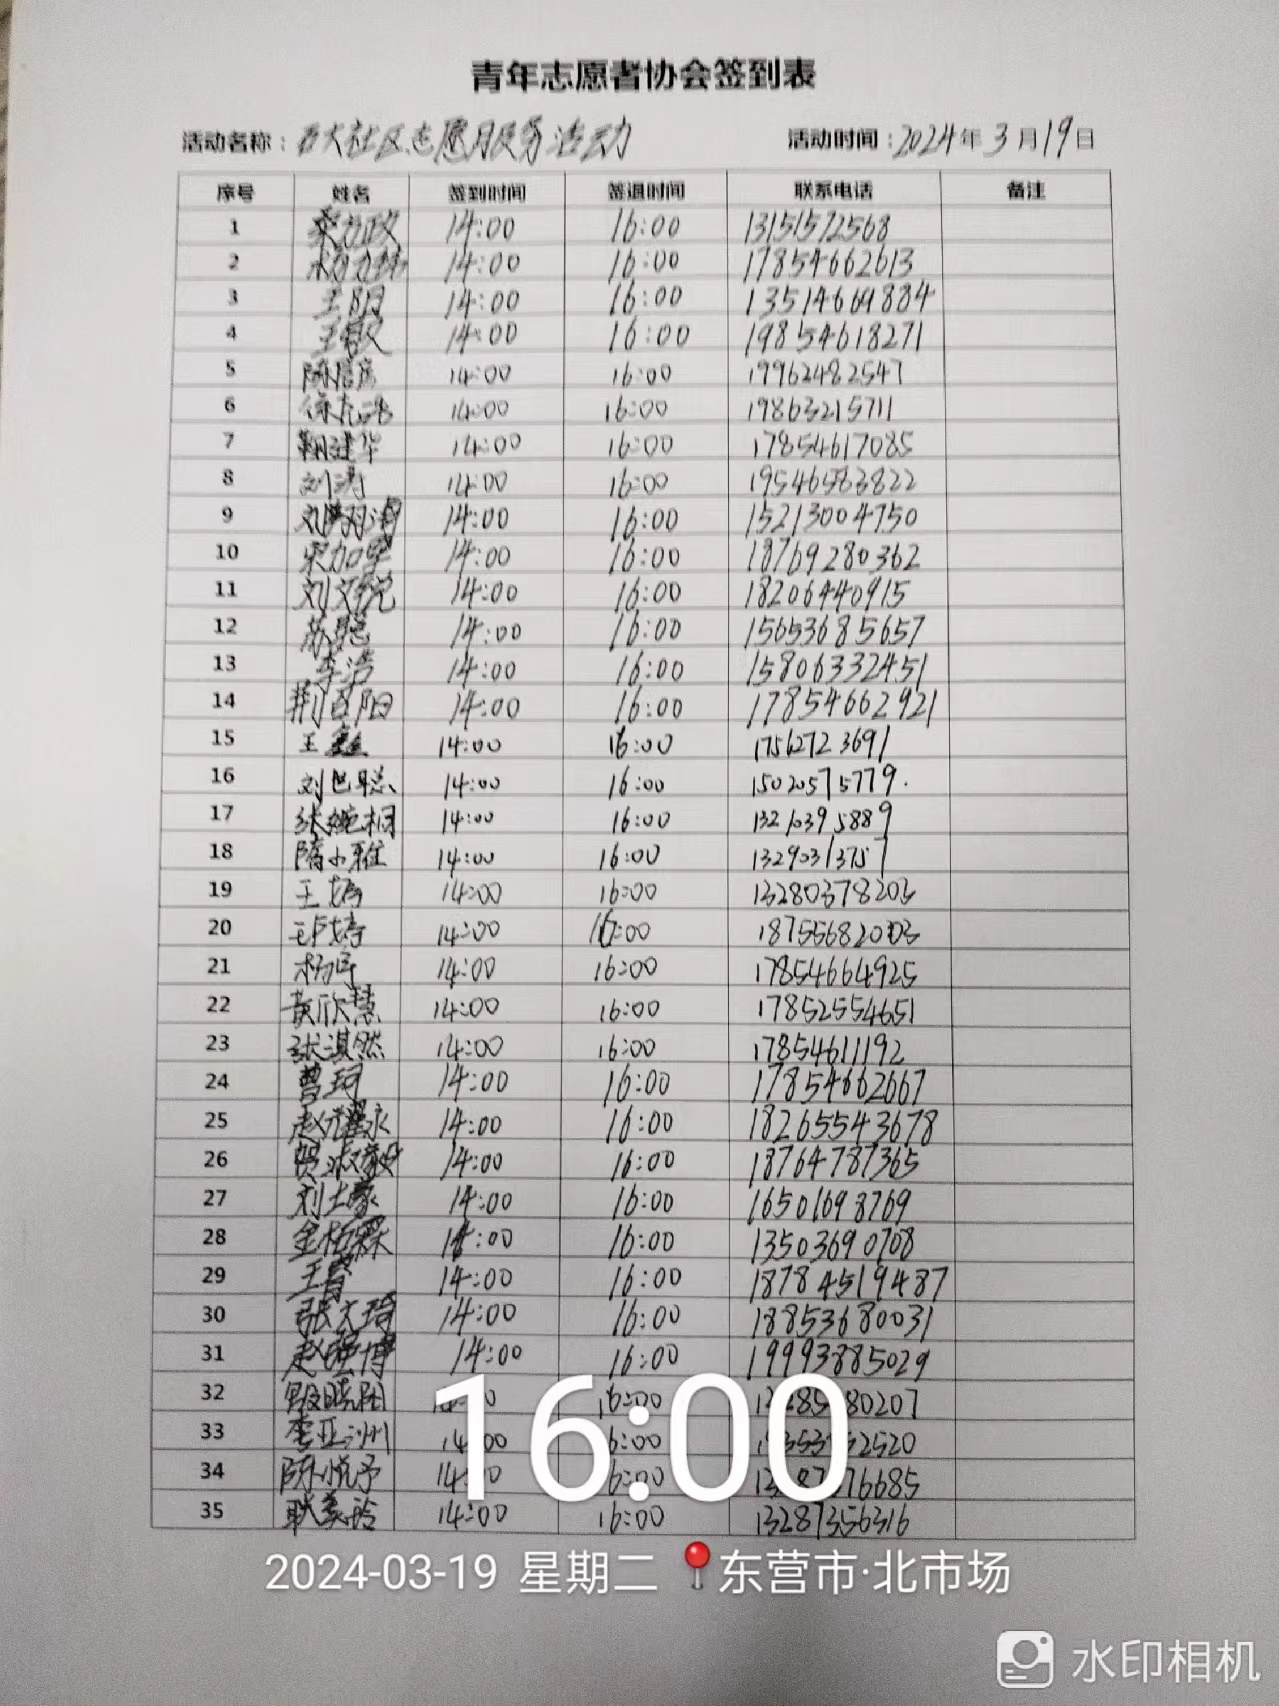 青年志愿者协会签到表
活动名称：石大社区志愿服务活动 活动时间：2024年3月19日
序号 姓名 签到时间 签退时间 联系电话 备注
1 14:00 16:00 13151572568
2 14:00 16:00 17854662613
3 王阳 14:00 16:00 13514669884
4 王敬 14:00 16:00 19854618271
5 14:00 16:00 19962482547
6 14:00 16:00 19863215711
7 14:00 16:00 17854617085
8 刘涛 14:00 16:00 19546583822
9 14:00 16:00 15213004750
10 14:00 16:00 18769280362
11 刘文锐 14:00 16:00 18206440915
12 苏聪 14:00 16:00 15653685657
13 李浩 14:00 16:00 15806332451
14 14:00 16:00 17854662921
15 王鑫 14:00 16:00 17562723691
16 14:00 16:00 15020575779.
17 张婉桐 14:00 16:00 13210395889
18 隋小雅 14:00 16:00 13290313757
19 王婷 14:00 16:00 13280378203
20 14:00 16:00
21 14:00 16:00 17854664925
22 黄欣慧 14:00 16:00 17852554651
23 张淇然 14:00 16:00 17854611192
24 曹珂 14:00 16:00 17854662667
25 14:00 16:00 18265543678
26 贾淑毅 14:00 16:00 18764787365
27 14:00 16:00 16501698769
28 14:00 16:00 13503690708
29 14:00 16:00 18784519487
30 张文琦 14:00 16:00 18853680031
31 赵强博 14:00 16:00 19993885029
32 殷晓阳 16:00
33 李亚洲 14:00 16:00
34 陈悦予 14:00 16:00
35 耿美玲 14:00 16:00 13287356316
16:00
2024-03-19 星期二 东营市·北市场
水印相机